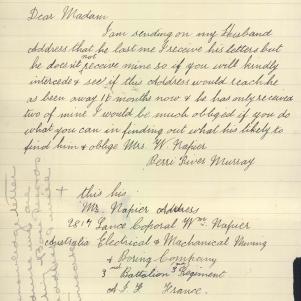 Dear Madam
I am sending on my Husband
address that he last me I receive his letters but
he does it not receive mine so if you will kindly
intercede & see if this address would reach he
as been away 18 months now & he has only received
two of mine I would be much obliged if you do
what you can in finding out what his likely to
find him & oblige Mrs. W Napier
Berri River Murray
+ this his
Mr Napier Address
2817 Lance Coporal Wm Napier
Australia Electrical & Machanical Mining
& Boring Company
3rd Battalion 3rd Regiment
A I F France.